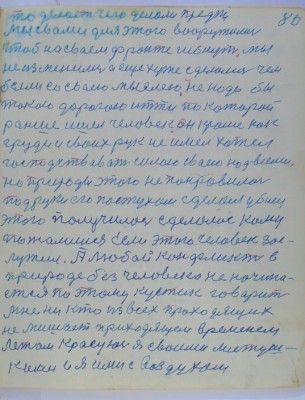 то делает чего делали предки 80
мы с вами для этого вооружили
чтоб на своем фронте гибнуть, мы
не изменили, а еще хуже сделали чем
если со своею мыслею, не надо бы
такою дорогою итти по которой
раньше шел человек, он кроме как
груди и своих рук не имел хотел
господствовать силою своею над всеми.
но природе этого не понравилось
подруки его поступком сделал убийц
этого получилось сделалось кому
пожалишся если этого человек зас-
лужил. А любой конфликт в
природе без человека не начина-
ется по этому кустик говорит
мне ни кто из всех проходящих
не мешает приходящем временем
летом красуюся своими листуш-
ками и я ими с воздухом